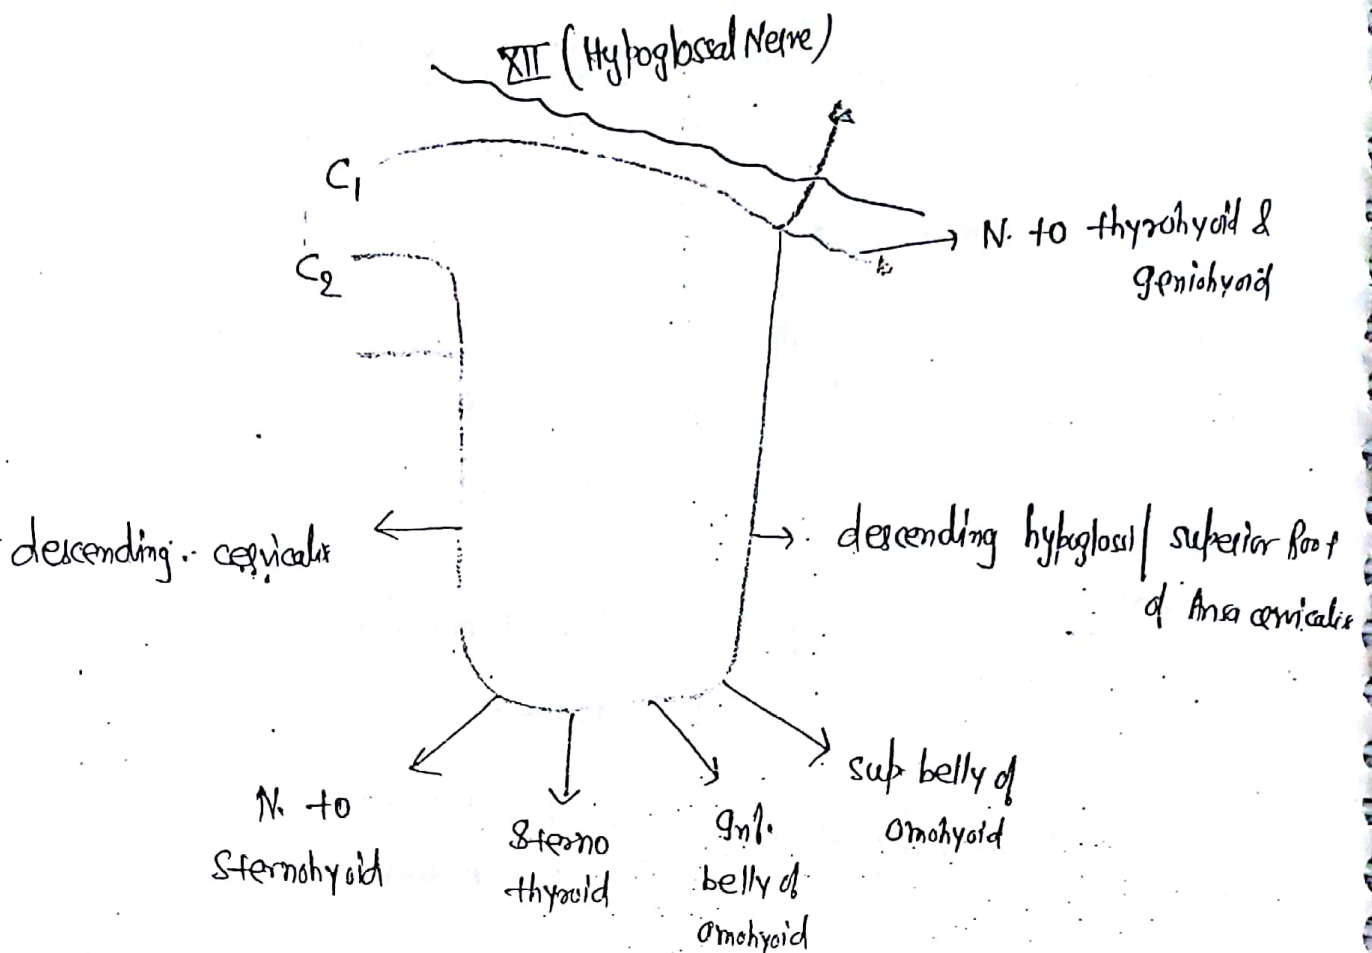 XII (Hypoglossal Nerve)
C1
C2
N. to thyrohyoid &
geniohyoid
descending cervicalis
descending hypoglossl / superior Root
of Ansa cervicalis
N. to
Sternohyoid
Sterno
thyroid
Inf.
belly of
omohyoid
sup belly of
omohyoid